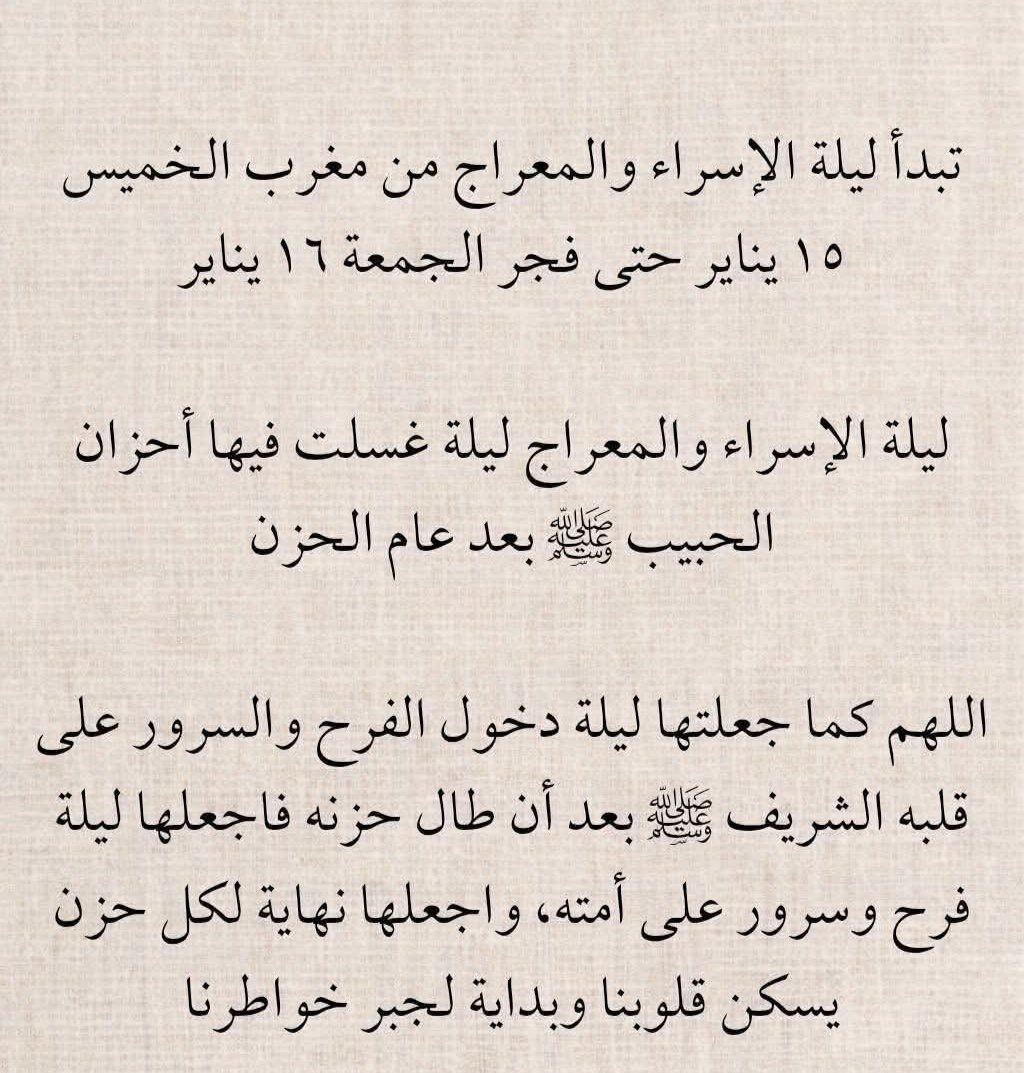 تبدأ ليلة الإسراء والمعراج من مغرب الخميس
١٥ يناير حتى فجر الجمعة ١٦ يناير
ليلة الإسراء والمعراج ليلة غسلت فيها أحزان
الحبيب ﷺ بعد عام الحزن
اللهم كما جعلتها ليلة دخول الفرح والسرور على
قلبه الشريف ﷺ بعد أن طال حزنه فاجعلها ليلة
فرح وسرور على أمته، واجعلها نهاية لكل حزن
يسكن قلوبنا وبداية لجبر خواطرنا